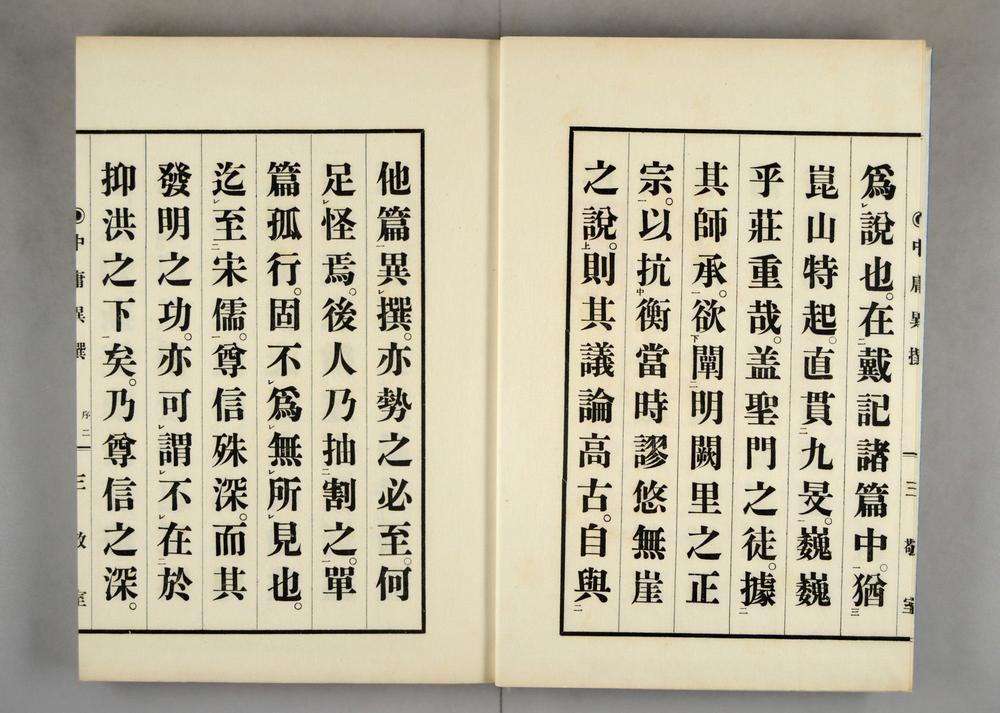 爲說也。在戴記諸篇中。猶
崑山特起。直貫九旻。巍巍
乎莊重哉。盖聖門之徒。據
其師承。欲闡明闕里之正
宗。以抗衡當時謬悠無崖
之說。則其議論高古。自與
他篇異撰。亦勢之必至。何
足怪焉。後人乃抽割之。單
篇孤行。固不爲無所見也。
迄至宋儒。尊信殊深。而其
發明之功。亦可謂不在於
抑洪之下矣。乃尊信之深。
中庸異撰
序二
三